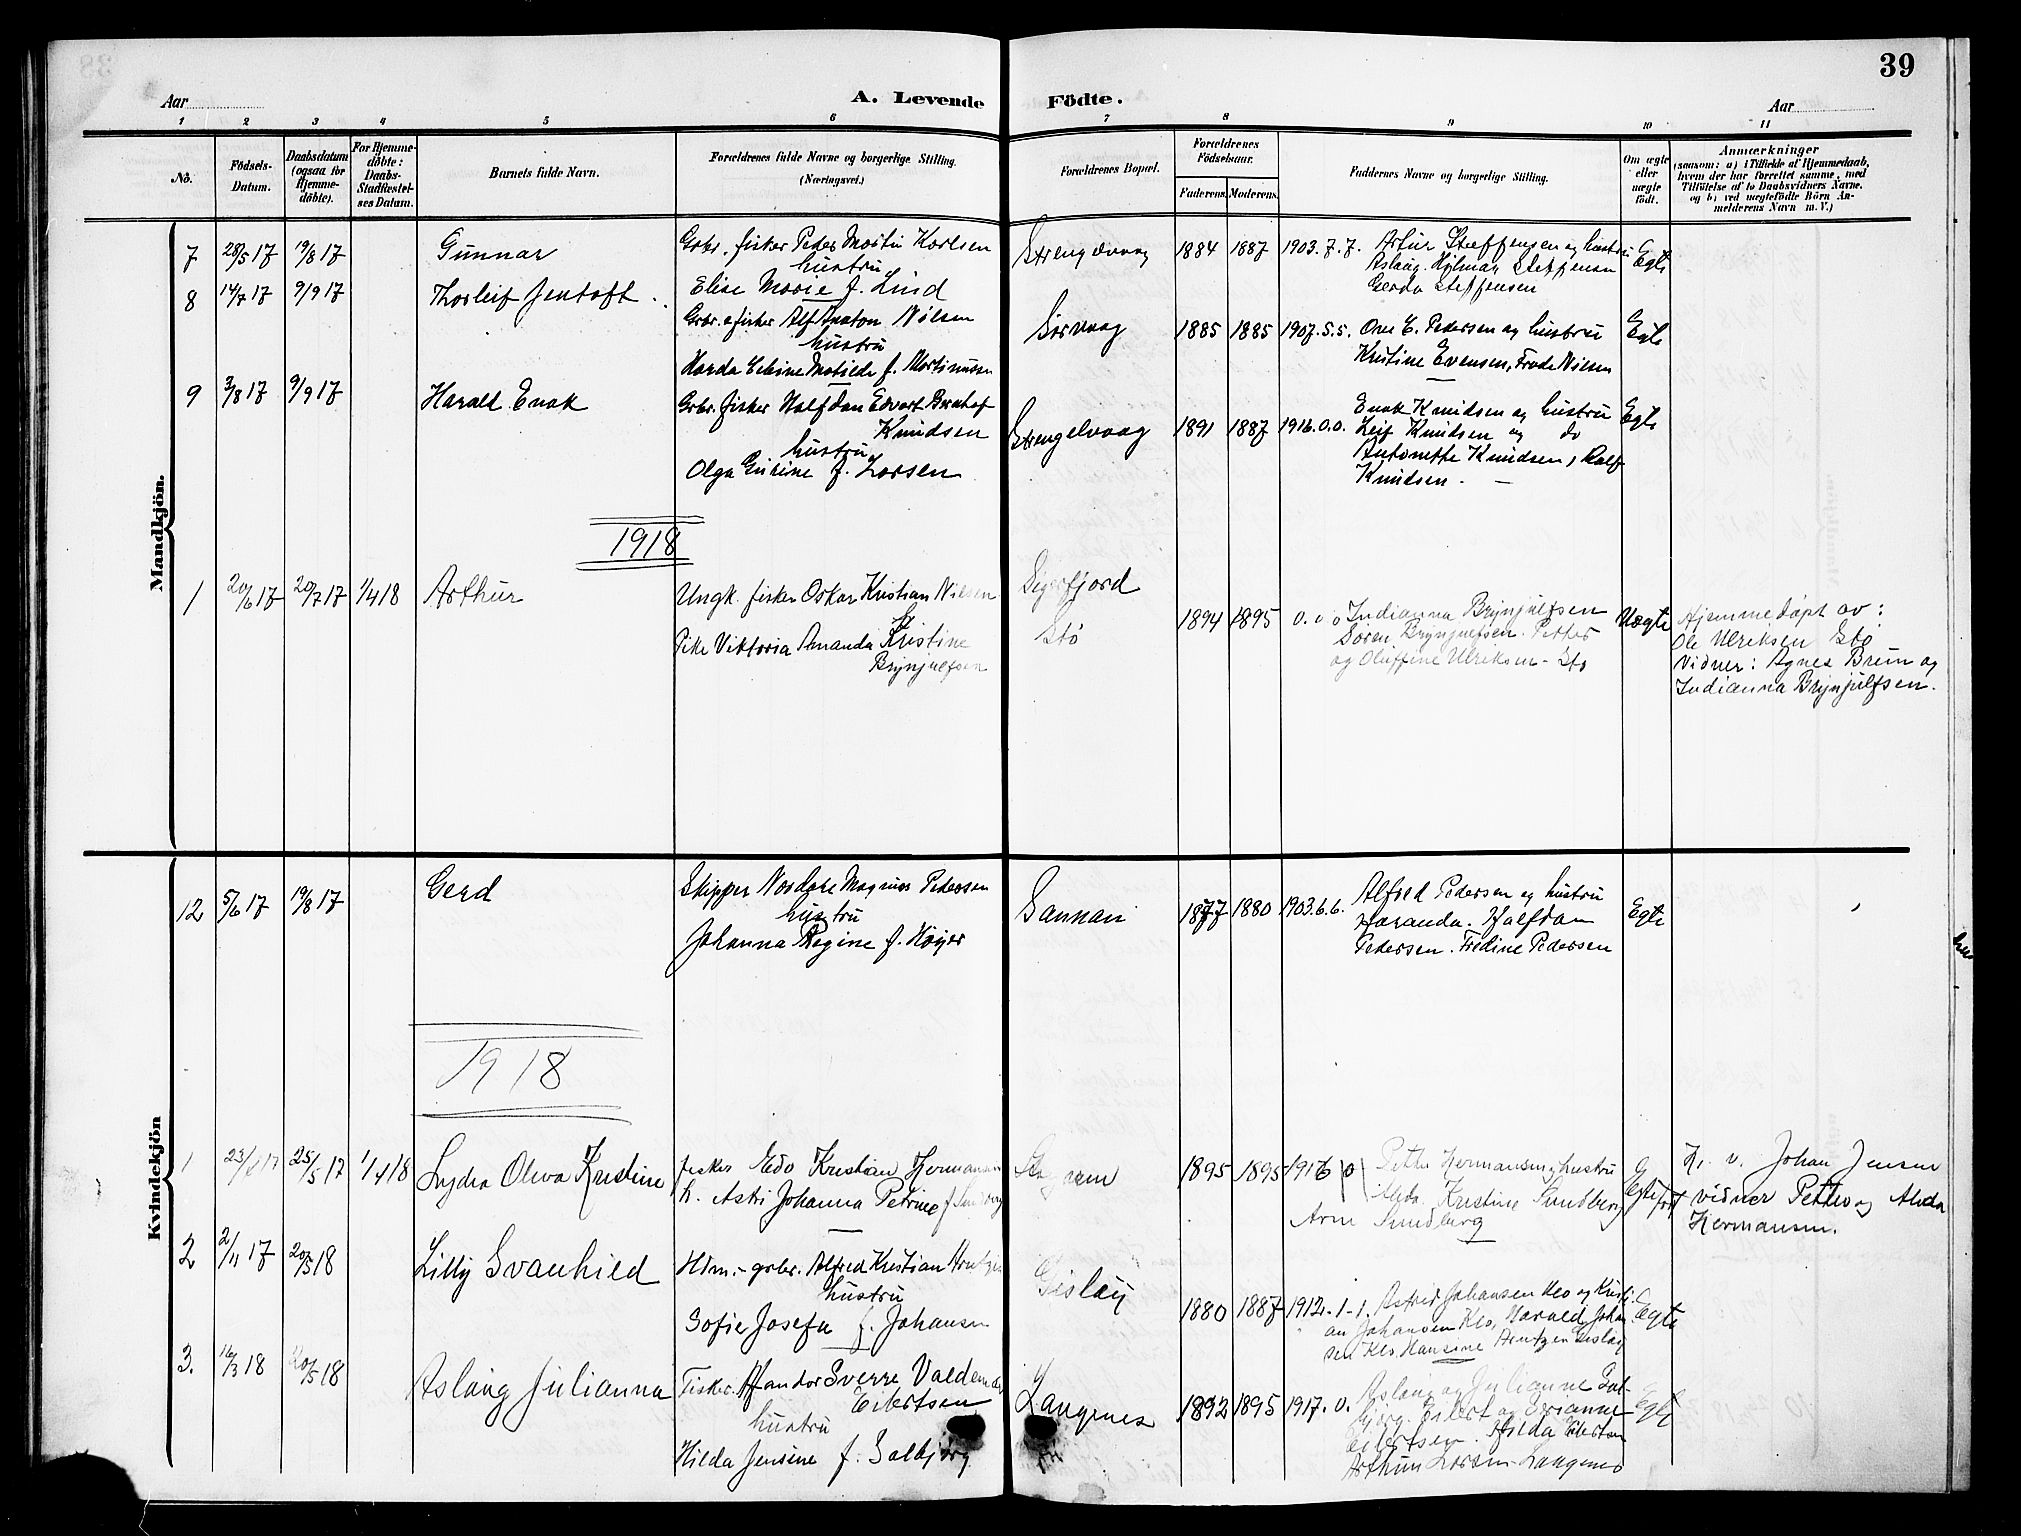 39
Aar
A. Levende Födte.
Aar
1 2 3 4 5 6 7 8 9 10 11
No.
Födsels-
Datum.
Daabsdatum
(ogsaa for
Hjemme-
döbte).
For Hjemme-
döbte:
Daabs-
Stadfæstel-
ses Datum.
Barnets fulde Navn.
Forældrenes fulde Navne og borgerlige Stilling.
(Næringsvei.)
Forældrenes Bopæl.
Forældrenes
Födselsaar.
Faderens. Moderens.
Faddernes Navne og borgerlige Stilling.
Om ægte
eller
uægte
födt.
Anmærkninger
(saasom: a) i Tilfælde af Hjemmedaab,
hvem der har forrettet samme, med
Tilföielse af to Daabsvidners Navne.
og b) ved uægtefödte Börn An-
melderens Navn m. V.)
Mandkjön.
7 28/5 17 19/8 17 Gunnar
Grbr. fisker Peder Martin Karlsen
hustru
Elise Marie f. Lind
Strengelvaag 1884 1887 1903.7.7.
Artur Steffensen og hustru
Aslaug. Hjlmar Steffensen
Gerda Steffensen
Egte
8 14/7 17 9/9 17 Thorleif Jentoft
Grbr. o fisker Alf Anton Nilsen
hustru
Harda Eline Matilde f. Martinussen
Sørvaag 1885 1885 1907.5.5.
Ove E. Pedersen og hustru
Kristine Evensen, Frode Nilsen
Egte
9 3/8 17 9/9 17 Harald Enok
Grbr. fisker Halfdan Edvart Bernhof
Knudsen
hustru
Olga Gurine f. Larsen
Strengelvaag 1891 1887 1916.0.0.
Enok Knudsen og hustru
Leif Knudsen og do
Antonette Knudsen, Ralf
Knudsen.
Egte
1918
1 20/6 17 20/7 17 1/4 18 Arthur
Ungk. fisker Oskar Kristian Nilsen
Pike Viktoria Amanda Kristine
Brynjulfsen
Sigerfjord
Stø
1894 1895 0.0
Indianna Brynjulfsen
Søren Brynjulfsen. Petter
og Oluffine Ulriksen - Stø
Uægte
Hjemmedøpt av:
Ole Ulriksen Stø
Vidner: Agnes Bruun og
Indianna Brynjulfsen.
Kvindekjön
12 5/6 17 19/8 17 Gerd
Skipper Nordare Magnus Pedersen
hustru
Johanna Regine f. Høijer
Sannan 1877 1880 1903.6.6.
Alfred Pedersen og hustru
Haranda. Halfdan
Pedersen. Fredine Pedersen
Egte
1918
1 25/5 17 1/4 18 Lydia Oliva Kristine
fisker Edv Kristian Hermansen
h. Astri Johanna Petrine f Sundberg
1895 1895 1916 0
Petter Hermansen og hustru
Alda. Kristine Sundberg
Arne Sundberg
Egte født
H. v. Johan Jensen
vidner Petter og Alvda
Hermansen.
2 2/11 17 20/5 18 Lilly Svanhild
Hdm. - grbr. Alfred Kristian Arntzen
hustru
Sofie Josefa f. Johansen
Gisløy 1880 1887 1912.1-1.
Astrid Johansen Klo og Kristi-
an Johansen Klo, Harald Johan
sen Klo. Hansine Arntzen Gisløy
Egte
3. 16/3 18 20/5 18 Aslaug Julianna
Fisker. Sverre Valdemar
Eilertsen
hustru
Hilda Jensine f. Salbjørg
Langenes 1892 1895 1917. 0.
Aslaug og Julianne Sal-
bjørg. Eilert og
Eilertsen. Hilda Eilertsen
Arthur Larsen Langenes
Egte